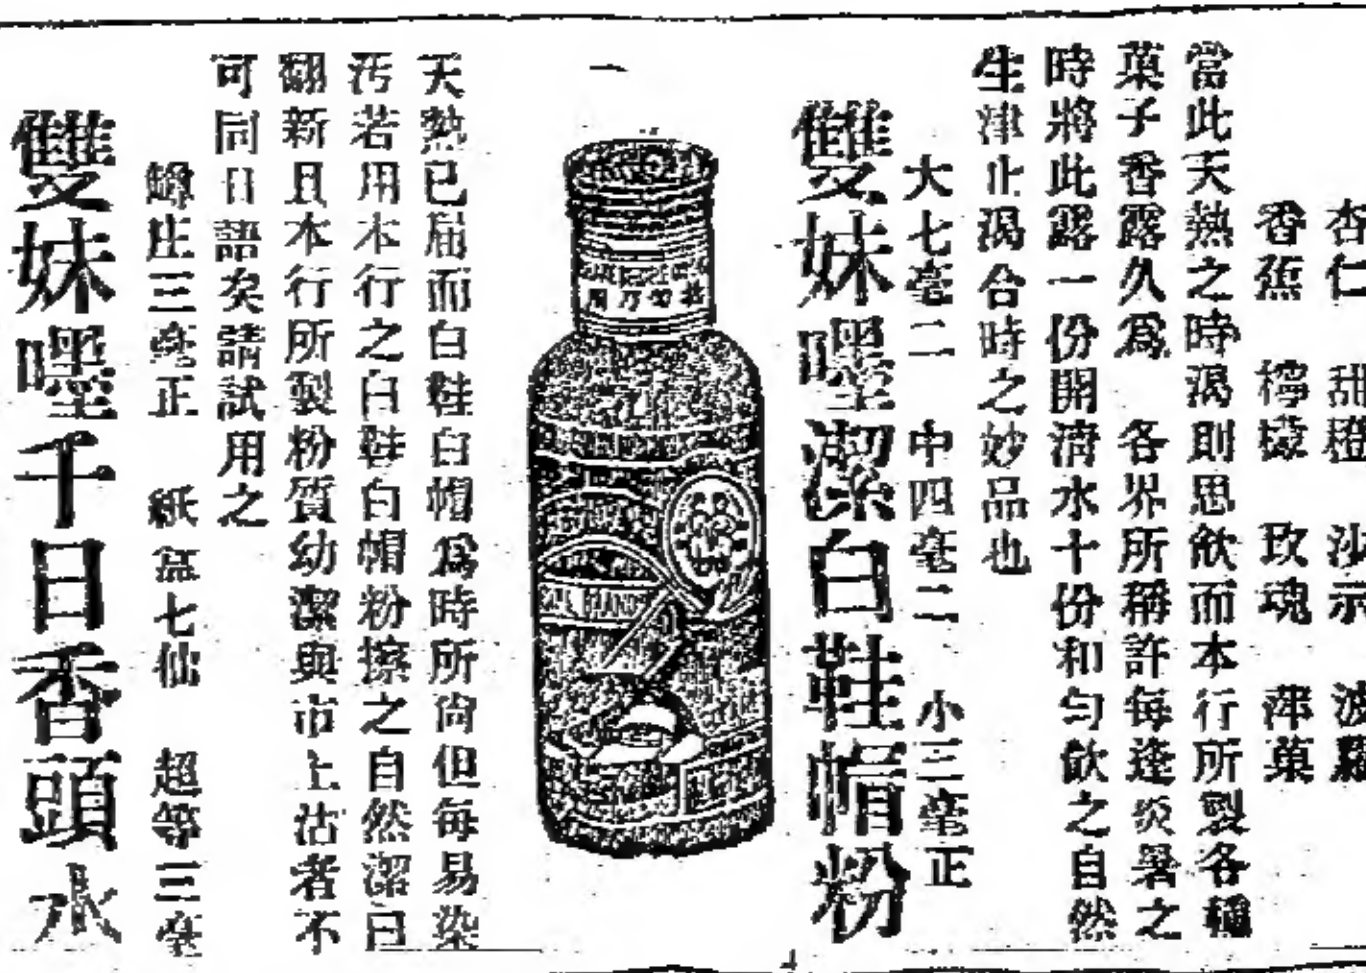 杏仁 甜橙 沙示 波羅
香蕉 檸檬 玫瑰 蘋菓
當此天熱之時渴則思飲而本行所製各種
菓子香露久爲 各界所稱許每逢炎暑之
時將此露一份開清水十份和勻飲之自然
生津止渴合時之妙品也
大七毫二 中四毫二 小三毫正
雙妹嚜潔白鞋帽粉
天熱已屆而白鞋白帽爲時所尙但每易染
汚若用本行之白鞋白帽粉擦之自然潔白
翻新且本行所製粉質幼潔與市上沽者不
可同日語矣請試用之
樽庄三毫正 紙盒七仙 超等三毫
雙妹嚜千日香頭水